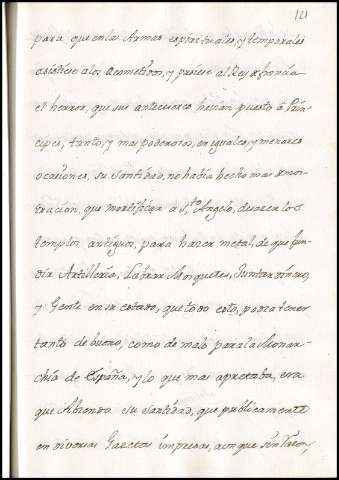 121
para que en las Armas espirituales, y temporales
asistiese a los Acometidos, y pusiese al Rey de francia
el herror, que sus antecesores hauian puesto â Prin-
cipes, tanto, y mas poderosos, en iguales, y menores
ocasiones, su Santidad, no hauia hecho mas demos-
tracion, que mortificar a S.to Angelo, desacer los
templos antiguos, para hazer metal, de que fun-
dir Artilleria, Labrar Mosquetes, Juntar dinero,
y Gente en su estado, que todo esto, podia tener
tanto de bueno, como de malo para la Monar-
chia de España, y lo que mas apretaba, era
que Abiendo su Santidad, que publicamente
en diversas Gacetas impresas, aunque sin